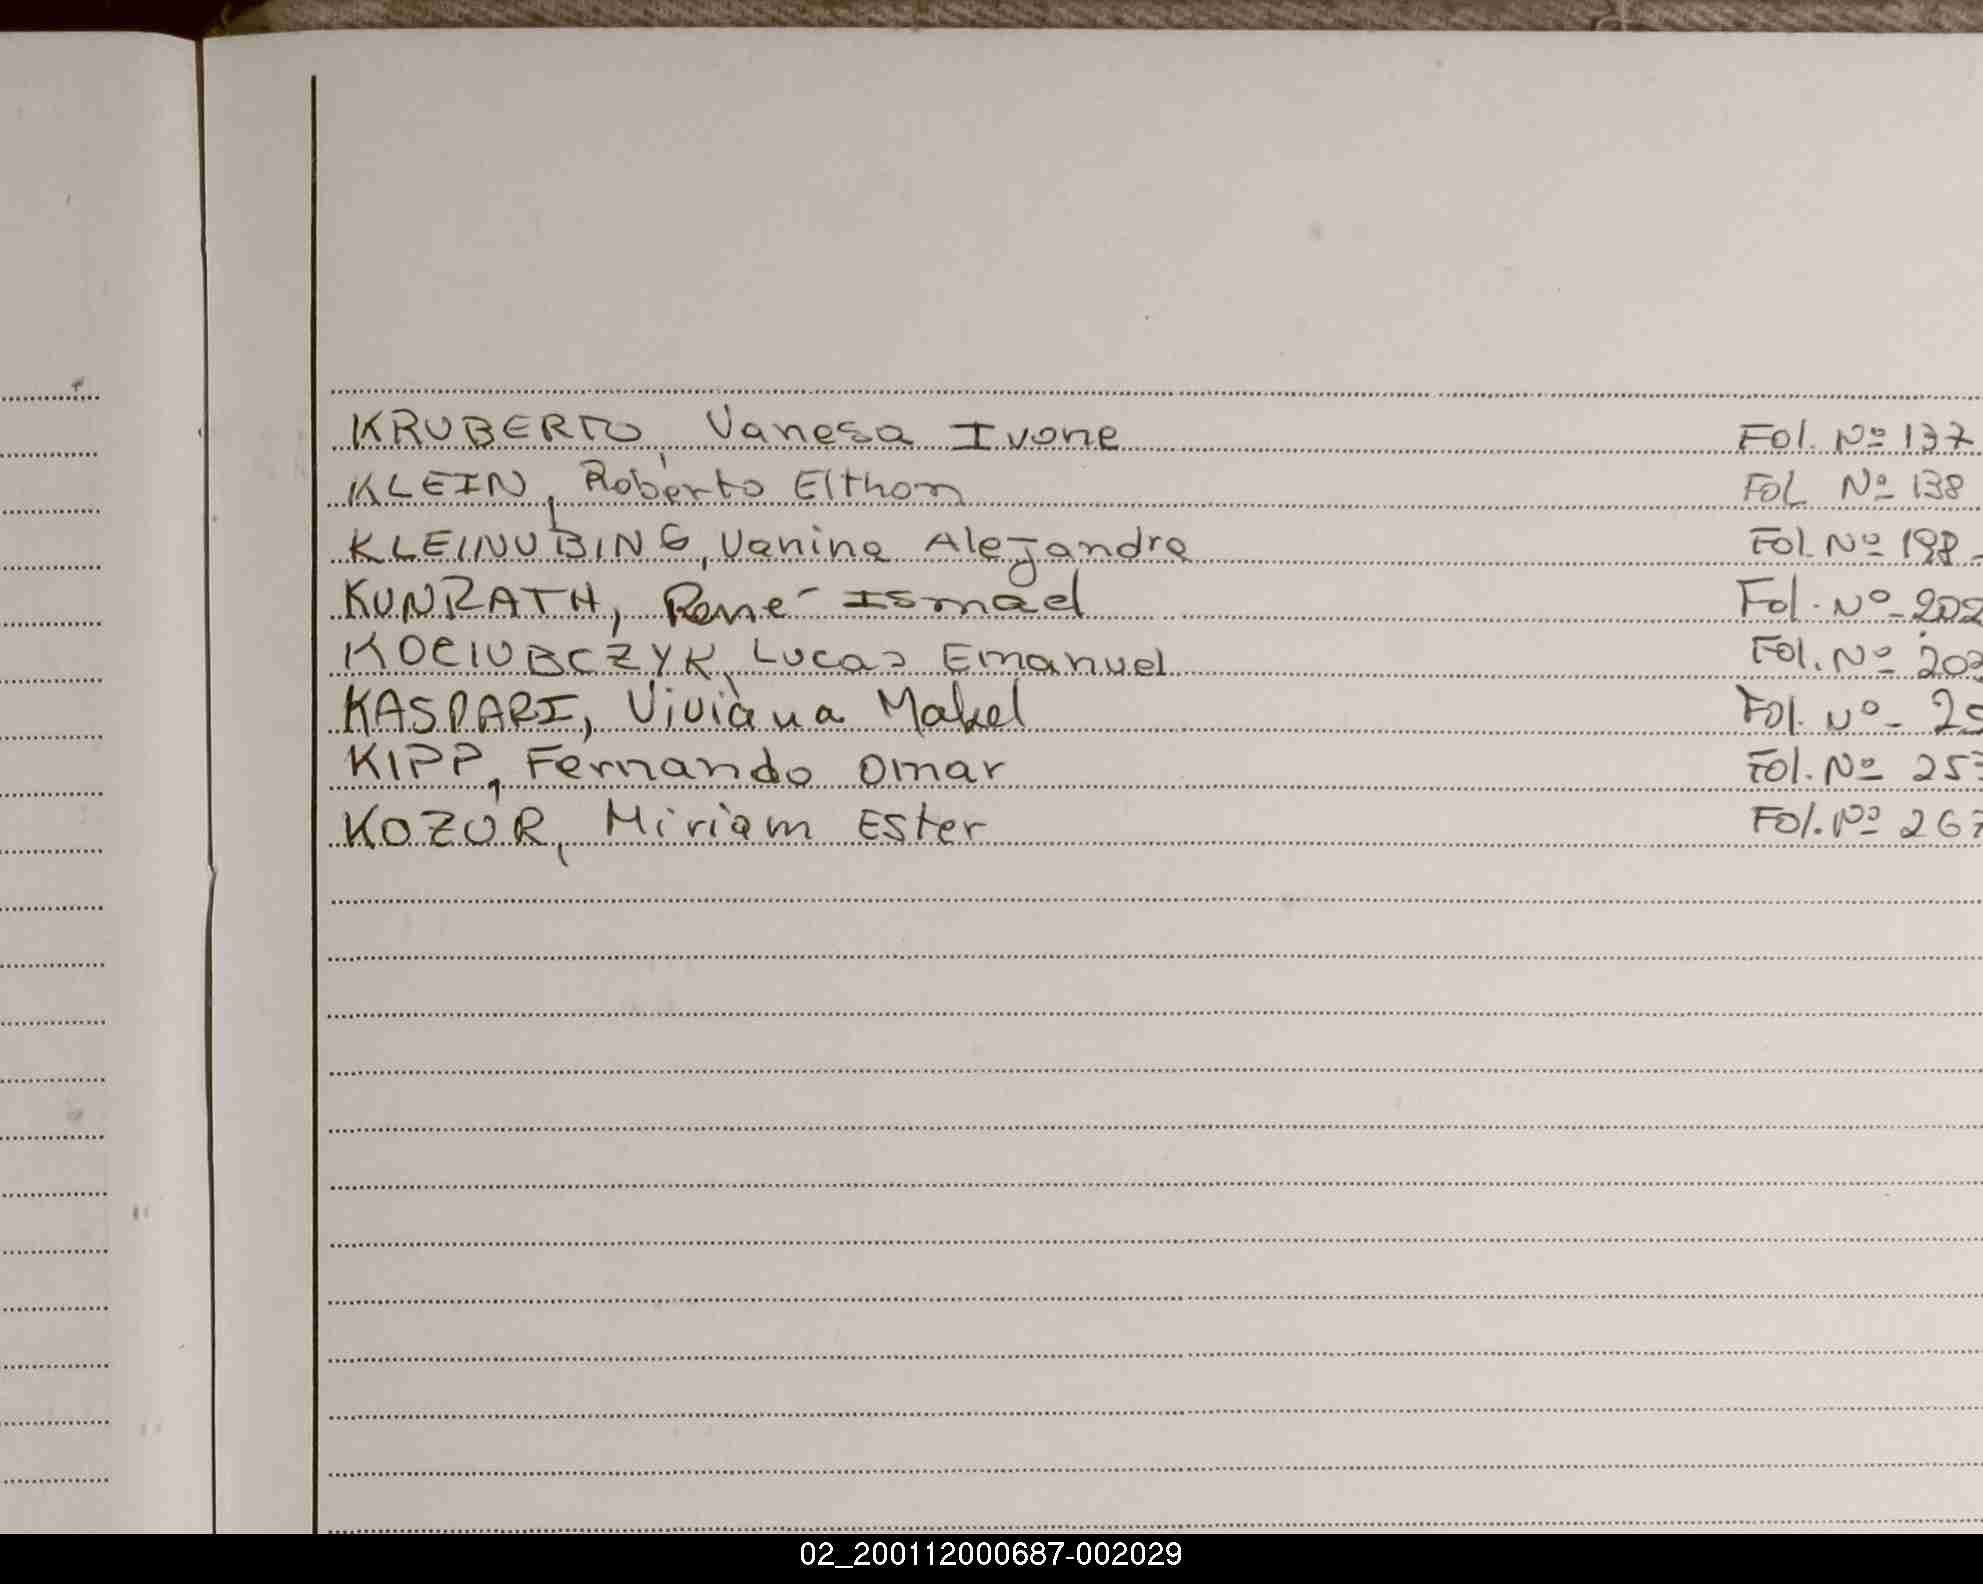 KRUBERTO, Vanesa Ivone Fol. Nº 137
KLEIN, Roberto Elthon Fol. Nº 138
KLEINUBING, Vanina Alejandra Fol. Nº 198
KUNRATH, René Ismael Fol. Nº 202
KOCIUBCZYK, Lucas Emanuel Fol. Nº
KASPARI, Viviana Mabel Fol. Nº
KIPP, Fernando Omar Fol. Nº
KOZUR, Miriam Ester Fol. Nº 267
02_200112000687-002029